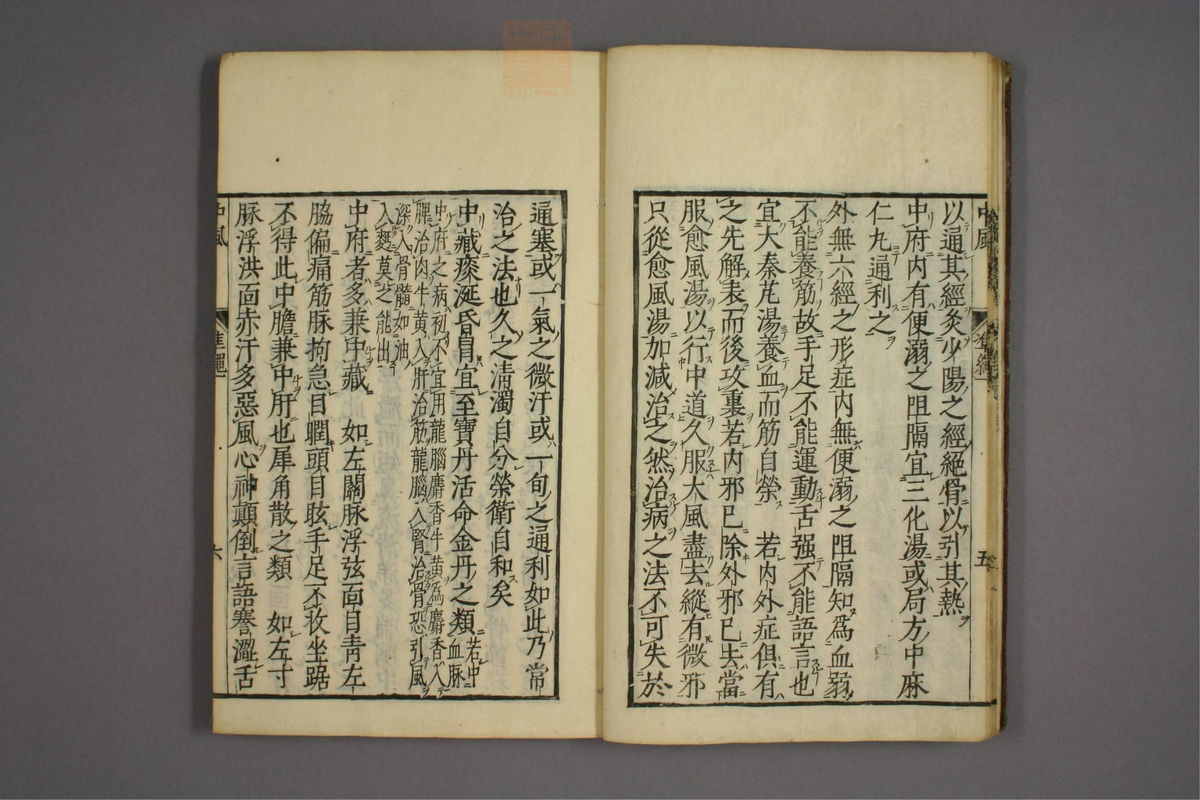 以通其經灸少陽之經絕骨以引其熱
中府內有便溺之阻膈宜三化湯或局方中麻
仁丸通利之
外無六經之形症內無便溺之阻膈知為血弱
不能養筋故手足不能運動舌强不能語言也
宜大秦艽湯養血而筋自榮 若內外症俱有
之先解表而後攻裏若內邪已除外邪已去當
服愈風湯以行中道久服大風盡去縱有微邪
只從愈風湯加減治之然治病之法不可失於
中風 準繩一 五
通塞或一氣之微汗或一旬之通利如此乃常
治之法也久之清濁自分榮衛自和矣
中藏痰涎昏冒宜至寶丹活命金丹之類若中血脉
中府之病初不宜用龍腦麝香牛黃為麝香入
脾治肉牛黃入肝治筋龍腦入腎治骨恐引風
深入骨髓如油
入麪莫之能出
中府者多兼中藏 如左關脉浮弦面目青左
脇偏痛筋脉拘急目瞤頭目眩手足不收坐踞
不得此中膽兼中肝也犀角散之類 如左寸
脉浮洪面赤汗多惡風心神顛倒言語蹇澀舌
中風 準繩一 六